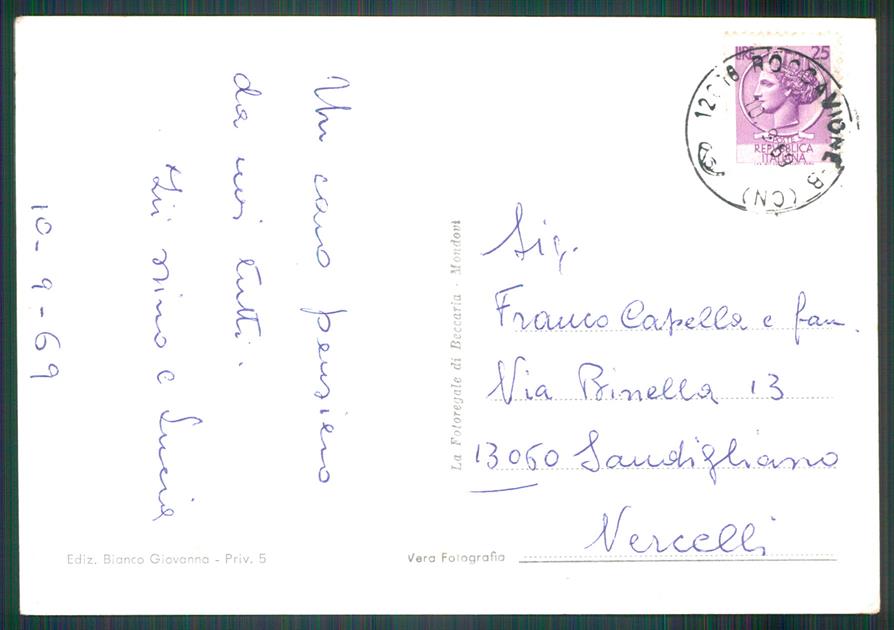 Un caro pensiero
da noi tutti.
e Lucia
10-9-69
Ediz. Bianco Giovanna - Priv. 5
Vera Fotografia
La Fotoregale di Beccaria - Mondovì
LIRE 25
POSTE
REPUBBLICA
ITALIANA
ROCCAVIONE-B (CN)
10.9.69
Sig.
Franco Capella e fam.
Via Binella 13
13060 Sandigliano
Vercelli